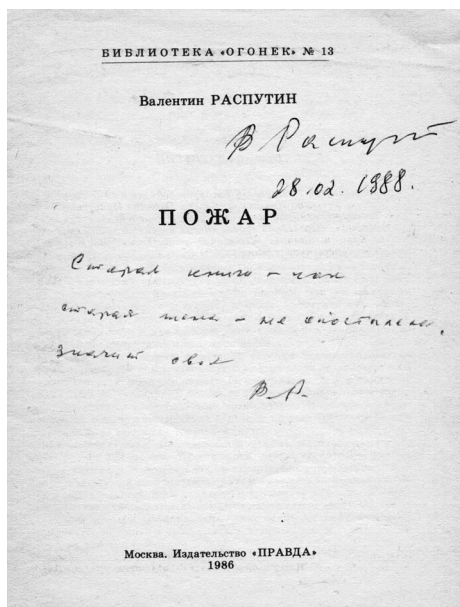 БИБЛИОТЕКА «ОГОНЕК» № 13
Валентин РАСПУТИН
В Распутин
28.02.1988.
ПОЖАР
Старая книга – как
старая жена – не опостылела,
значит своя
В.Р.
Москва. Издательство «ПРАВДА»
1986